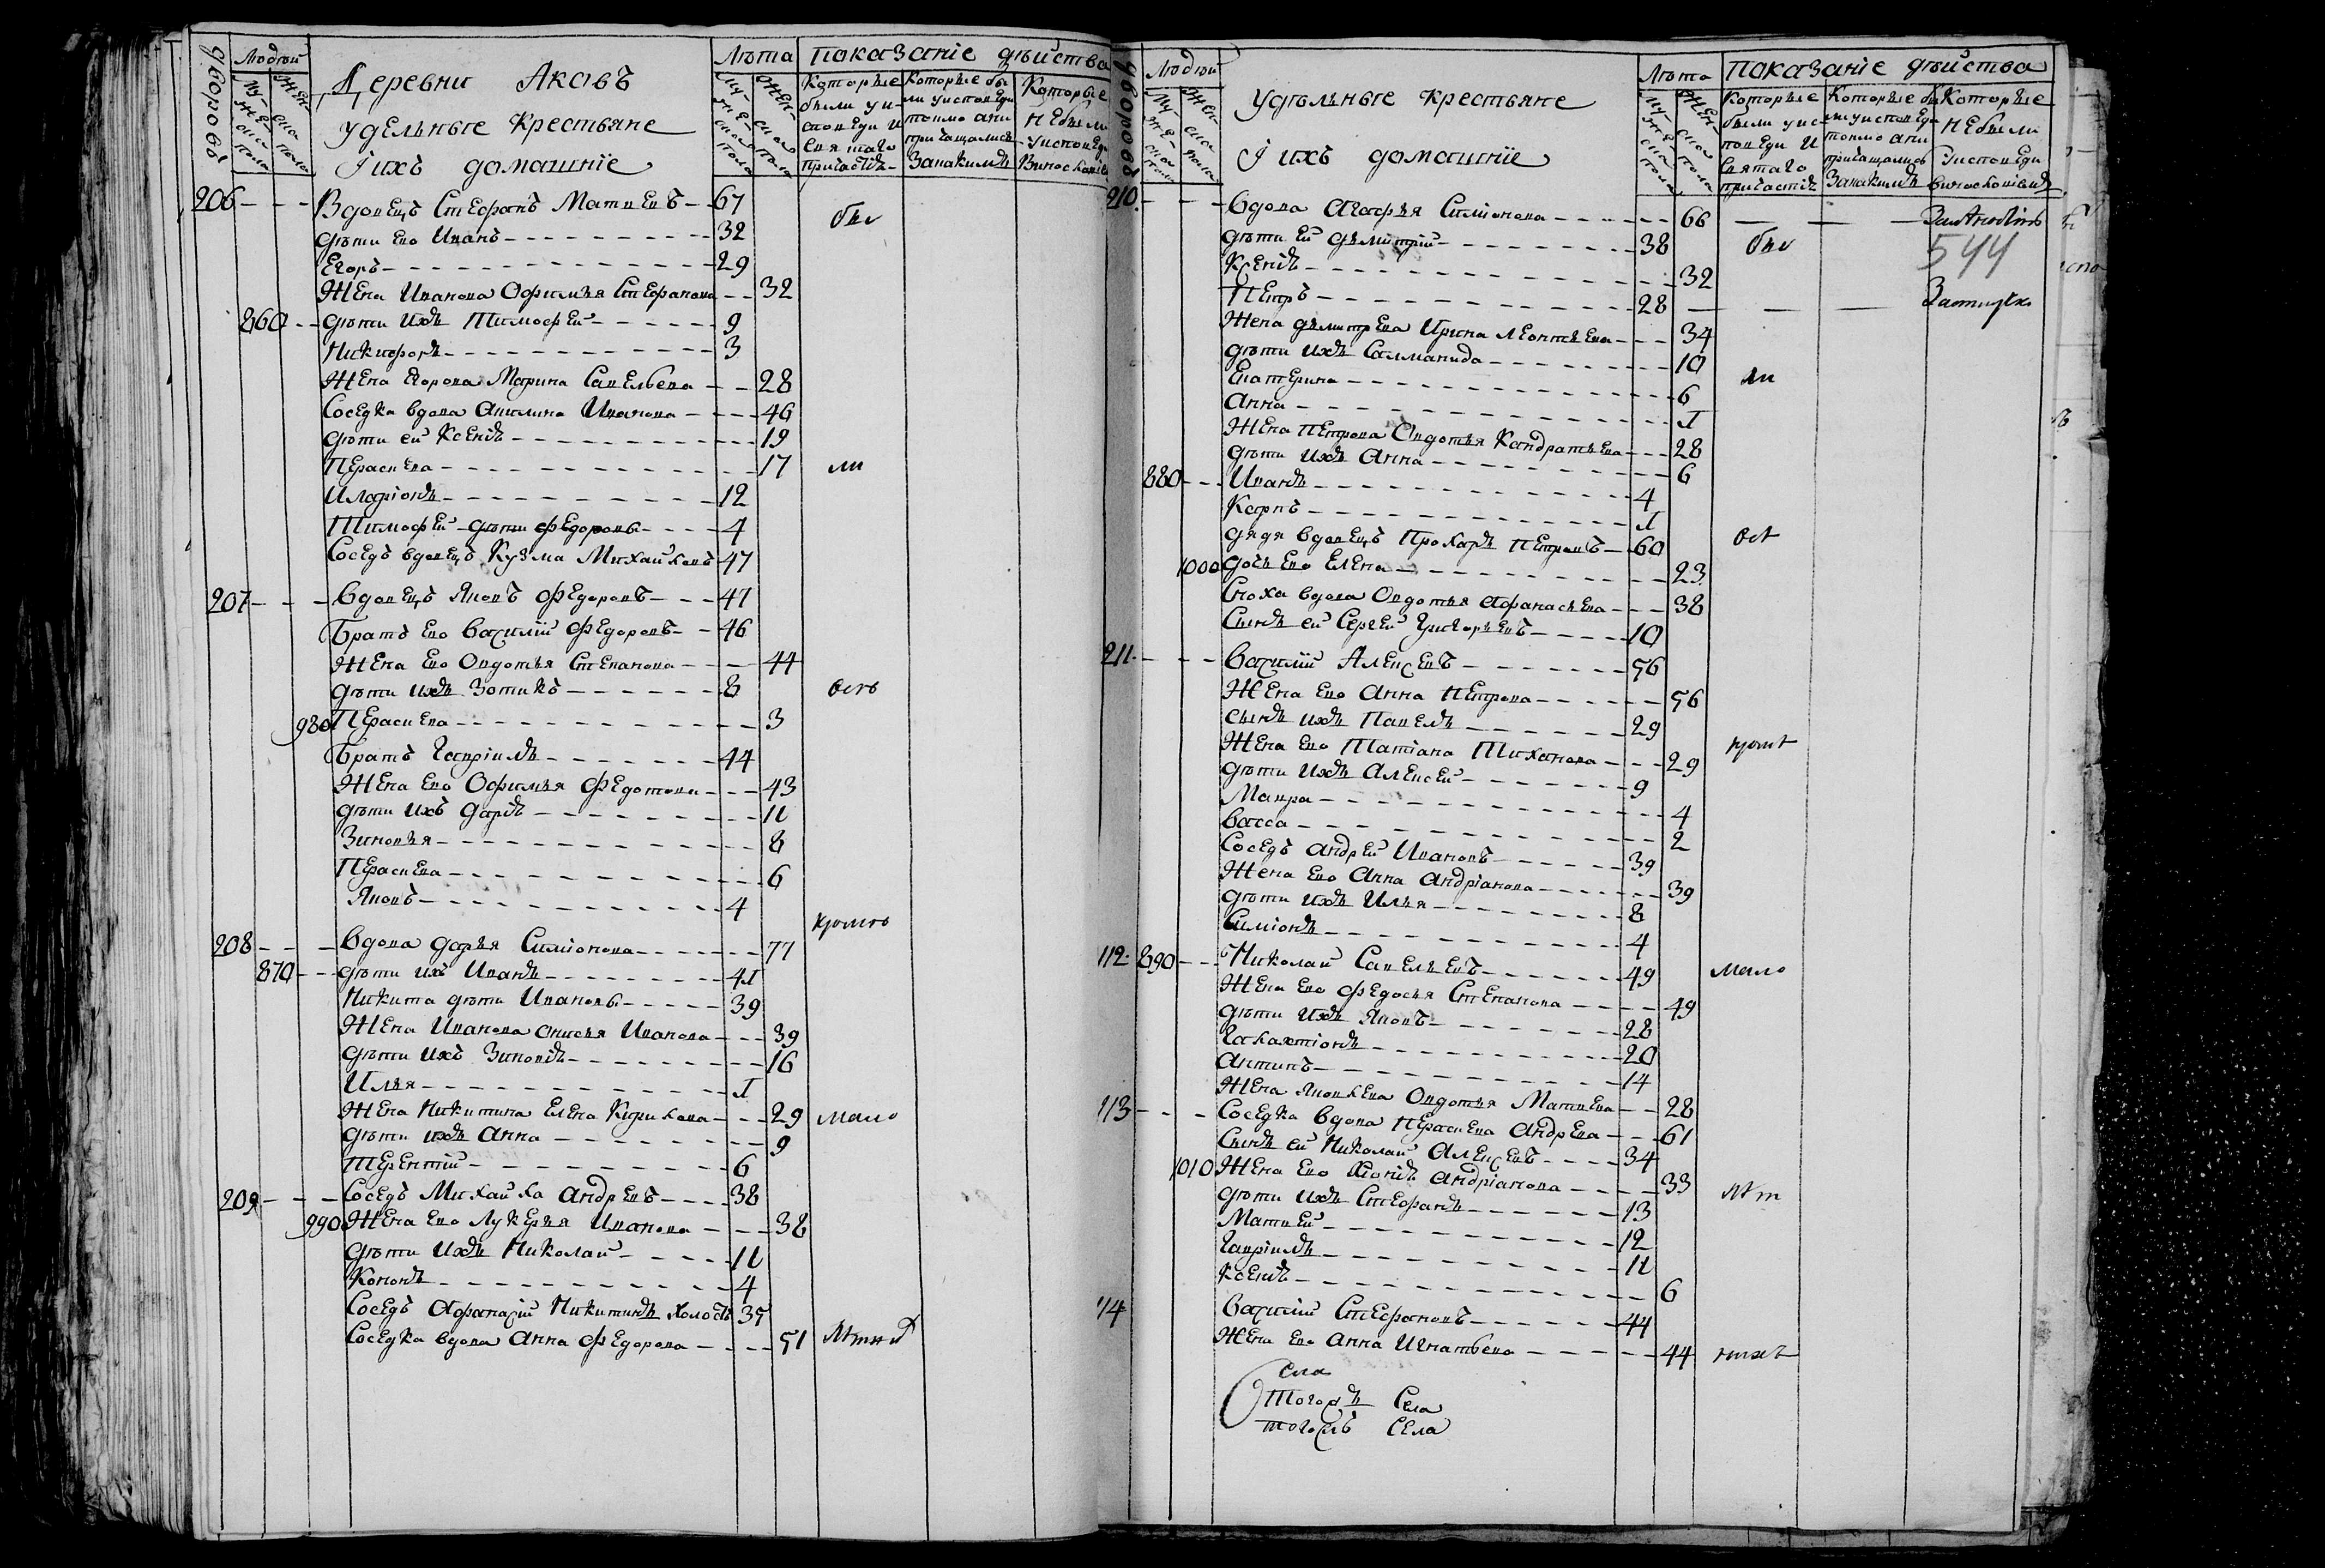 дворовъ
Людей
Муженска пола
Женска пола
Деревни Аказъ
удельные крестьяне
И ихъ домашнїе
Лѣта
Мужеска пола
Женска пола
Показанїе дѣйства
Которые были у исповеди и святаго причастїя
Которые были у исповеди токмо а не причащались За какимъ
Которые не были у исповеди
206 - - - Вдовецъ Стефанъ Матвевъ - - 67
дѣти ево Иванъ - - - 32 бы
Егоръ - - - 29
Жена Иванова Офимья Стефанова - - 32
860 - - дѣти ихъ Тимофей - - - 9
Никифоръ - - - 3
Жена Егорова Марина Савельева - - 28
Соседка вдова Акилина Иванова - - - 46
дѣти ей Ксенїя - - - 19
Парасцева - - - 17 ли
Иларїонъ - - - 12
Тимофей дѣти Федоровы - - - 4
Соседъ вдовецъ Кузма Михайловъ 47
207 - - - Вдовецъ Яковъ Федоровъ - - - 47
Братъ ево Василїй Федоровъ - - 46
Жена ево Овдотья Степанова - - - 44
дѣти ихъ Зотикъ - - - 8 всѣ
980 Парасцева - - - 3
Братъ Гаврїилъ - - - 44
Жена ево Офимья Федотова - - - 43
дѣти ихъ Дарїя - - - 11
Зиновья - - - 8
Парасцева - - - 6
Яковъ - - - 4
кромѣ
208 - - - Вдова Дарья Симїонова - - - 77
870 - - дѣти ихъ Иванъ - - - 41
Никита дѣти Ивановы - - - 39
Жена Иванова Анисья Иванова - - - 39
дѣти ихъ Зиновїя - - - 16
Илья - - - 1
Жена Никитина Елена Кирилова - - - 29 мало
дѣти ихъ Анна - - - 9
Терентїй - - - 6
209 - - - Соседъ Михайла Андревъ - - - 38
990 Жена ево Лукерья Иванова - - - 38
дѣти ихъ Николай - - - 11
Кононъ - - - 4
Соседъ Афанасїй Никитинъ холостъ 35
Соседка вдова Анна Федорова - - - 51 лѣтныхъ
дворовъ
Людей
Мужеска пола
Женска пола
удѣльные крестьяне
И ихъ домашнїе
Лѣта
Мужеска пола
Женска пола
Показанїе дѣйства
Которые были у исповеди и святаго причастїя
Которые были у исповеди токмо а не причащались За какимъ
Которые не были у исповеди
210. - - - Вдова Агафья Симїонова - - - 66
дѣти ей Дѣмитрїй - - - 38 бы 544
Ксенїя - - - 32
Петръ - - - 28
Жена Дѣмитрева Ирина Леонтьева - - - 34
дѣти ихъ Саломанида - - - 10
Екатерина - - - 6 ли
Анна - - - 1
Жена Петрова Овдотья Кандратьева - - - 28
дѣти ихъ Анна - - - 6
880 - - - Иванъ - - - 4
Карпъ - - - 1
дядя вдовецъ Прохаръ Петровъ - - 60 всѣ
1000 дочь ево Елена - - - 23
Сноха вдова Овдотья Афанасьева - - - 38
Сынъ ей Сергей Григорьевъ - - - 10
211. - - - Василїй Алексевъ - - - 56
Жена ево Анна Петрова - - - 56
Сынъ ихъ Павелъ - - - 29
Жена ево Татїана Тиханова - - - 29 кромѣ
дѣти ихъ Алексей - - - 9
Мавра - - - 4
Васса - - - 2
Соседъ Андрей Ивановъ - - - 39
Жена ево Анна Андрїанова - - - 39
дѣти ихъ Илья - - - 8
Симїонъ - - - 4
112. 890 - - - Николай Савельевъ - - - 49 мало
Жена ево Федосья Степанова - - - 49
дѣти ихъ Яковъ - - - 28
Галахтїонъ - - - 20
Антипъ - - - 14
Жена Яковлева Овдотья Матвева - - 28
113 - - - Соседка вдова Парасцева Андрева - - - 61
Сынъ ей Николай Алексевъ - - - 34
1010 Жена ево Хїонїя Андрїанова - - - 33 лѣт
дѣти ихъ Стефанъ - - - 13
Матвей - - - 12
Гаврїилъ - - - 11
Ксенїя - - - 6
114 Василїй Стефановъ - - - 44
Жена ево Анна Игнатьева - - - 44 ныхъ
Села
Тогожъ Села
тогожъ Села